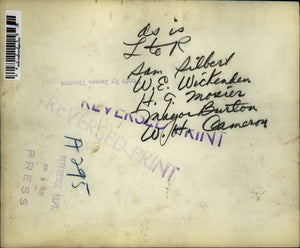 as is
L to R
Sam Silbert
W. E. Wickenden
H. G. Mosier
Mayor Burton
W. H. Cameron
by James Thomas
REVERSED PRINT
REVERSED PRINT
REFERENCE DEPT.
PRESS